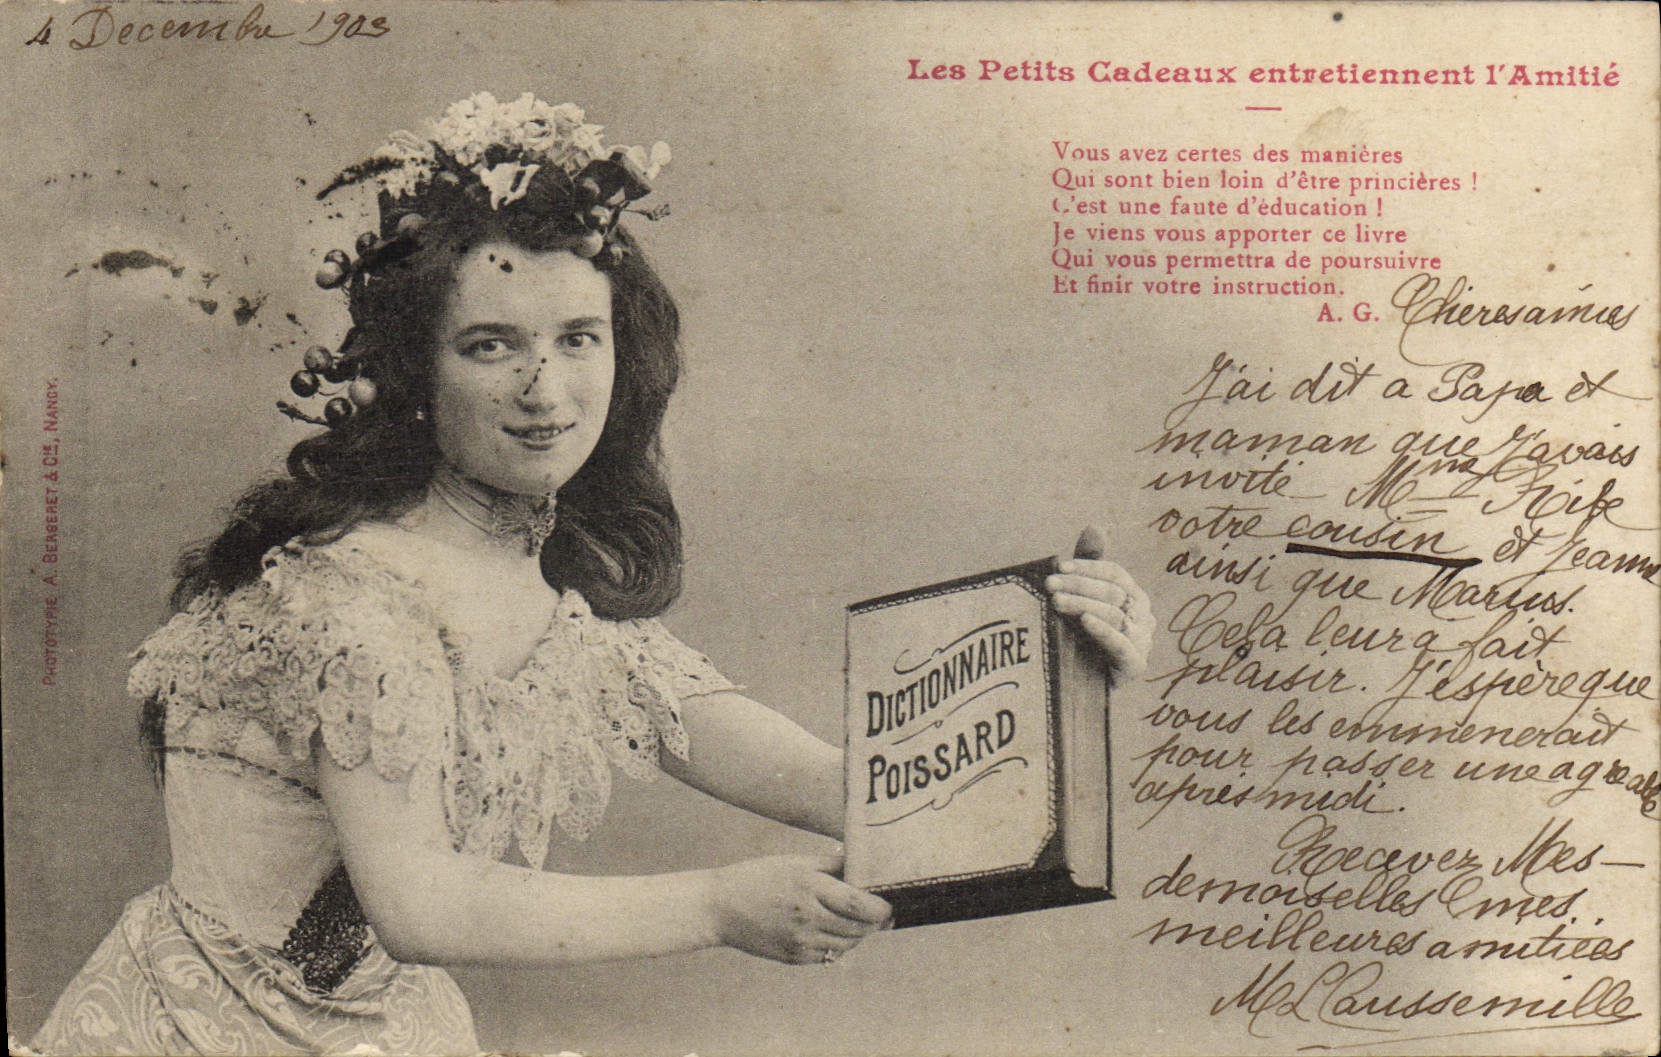 4 Decembre 1903
Les Petits Cadeaux entretiennent l'Amitié
Vous avez certes des manières
Qui sont bien loin d'être princières !
C'est une faute d'éducation !
Je viens vous apporter ce livre
Qui vous permettra de poursuivre
Et finir votre instruction.
A. G.
Cheresamies
J'ai dit a Papa et
maman que J'avais
invité Mme
votre cousin et Jeanne
ainsi que Marius.
Cela leur a fait
plaisir. J'éspère que
vous les emmenerait
pour passer une agreable
après midi.
Recevez Mes-
demoiselles mes
meilleures amitiées
M L Caussemille
DICTIONNAIRE
POISSARD
PHOTOTYPIE A. BERGERET & Cie, NANCY.